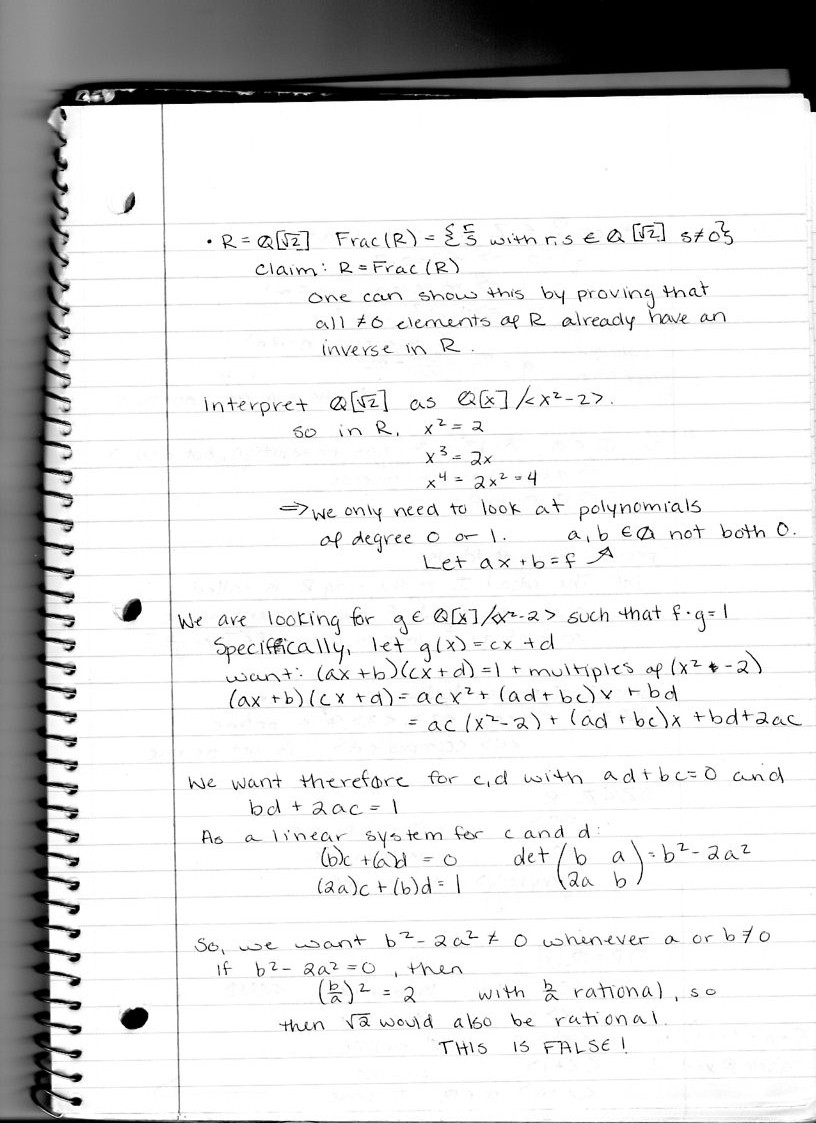 • R = Q[√2] Frac(R) = {r/s with r,s ∈ Q[√2] s≠0}
claim: R = Frac(R)
one can show this by proving that
all ≠0 elements of R already have an
inverse in R.
interpret Q[√2] as Q[x]/<x²-2>.
so in R, x² = 2
x³ = 2x
x⁴ = 2x² = 4
⇒ we only need to look at polynomials
of degree 0 or 1. a, b ∈ Q not both 0.
Let ax + b = f ↗
We are looking for g ∈ Q[x]/<x²-2> such that f·g=1
Speciffically, let g(x) = cx + d
want: (ax+b)(cx+d) = 1 + multiples of (x² - 2)
(ax+b)(cx+d) = acx² + (ad+bc)x + bd
= ac(x²-2) + (ad+bc)x + bd+2ac
We want therefore for c,d with ad+bc=0 and
bd + 2ac = 1
As a linear system for c and d:
(b)c + (a)d = 0 det (b a) = b² - 2a²
(2a)c + (b)d = 1 (2a b)
So, we want b² - 2a² ≠ 0 whenever a or b ≠ 0
If b² - 2a² = 0, then
(b/a)² = 2 with b/a rational, so
then √2 would also be rational.
THIS IS FALSE!